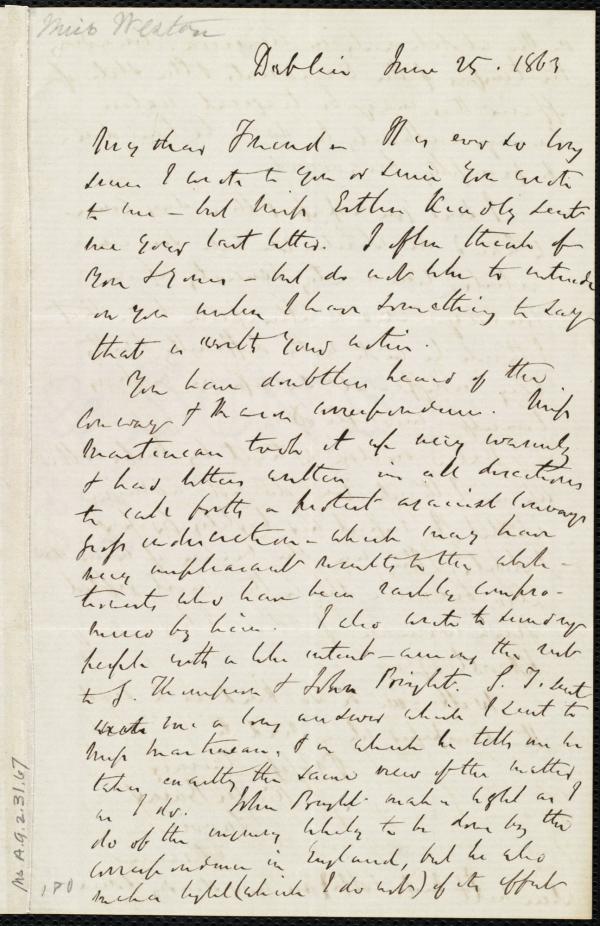 Miss Weston
Dublin June 25. 1863
My dear Friend - It is ever so long
since I wrote to you or since you wrote
to me - but Miss Estlin kindly sent
me your last letter. I often think of
you & yours - but do not like to intrude
on you unless I have something to say
that is worth your notice.
You have doubtless heard of the
Conway & Mason correspondence. Miss
Martineau took it up very warmly
& had letters written in all directions
to call forth a protest against Conway's
gross indiscretion - which may have
very unpleasant results to the aboli-
tionists who have been rashly compro-
mised by him. I also wrote to sundry
people with a like intent - among the rest
to G. Thompson & John Bright. G. T. sent
me a long answer which I sent to
Miss Martineau, & in which he tells me he
takes exactly the same view of the matter
as I do. John Bright makes light as I
do of the injury likely to be done by the
correspondence in England, but he also
makes light (which I do not) of its effect
Ms A.9.2.31.67